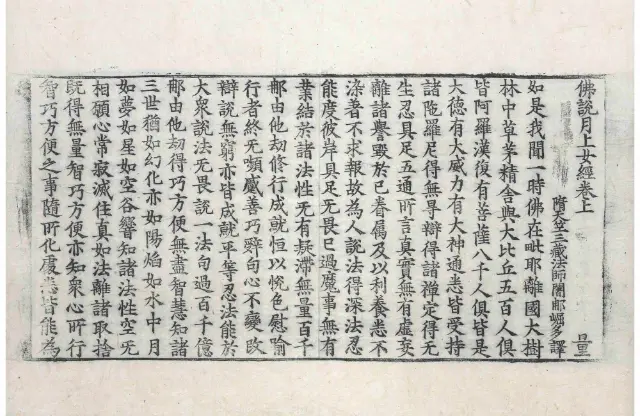 佛說月上女經卷上
隋天竺三藏法師闍那崛多譯 量
如是我聞一時佛在毗耶離國大樹
林中草茅精舍與大比丘五百人俱
皆阿羅漢復有菩薩八千人俱皆是
大德有大威力有大神通悉皆受持
諸陁羅尼得無㝵辯得諸禪定得无
生忍具足五通所言真實無有虛妄
離諸譽毀於己眷屬及以利養悉不
染著不求報故為人說法得深法忍
能度彼岸具足无畏已過魔事無有
業結於諸法性无有疑滯無量百千
那由他劫修行成就恒以悅色慰喻
行者終无嚬蹙善巧辭句心不變改
辯說無窮亦皆成就平等忍法能於
大衆說法无畏說一法句過百千億
那由他劫得巧方便無盡智慧知諸
三世猶如幻化亦如陽焰如水中月
如夢如星如空谷響知諸法性空无
相願心常寂滅住真如法離諸取捨
既得無量智巧方便亦知衆心所行
智巧方便之事隨所化處悉皆能為